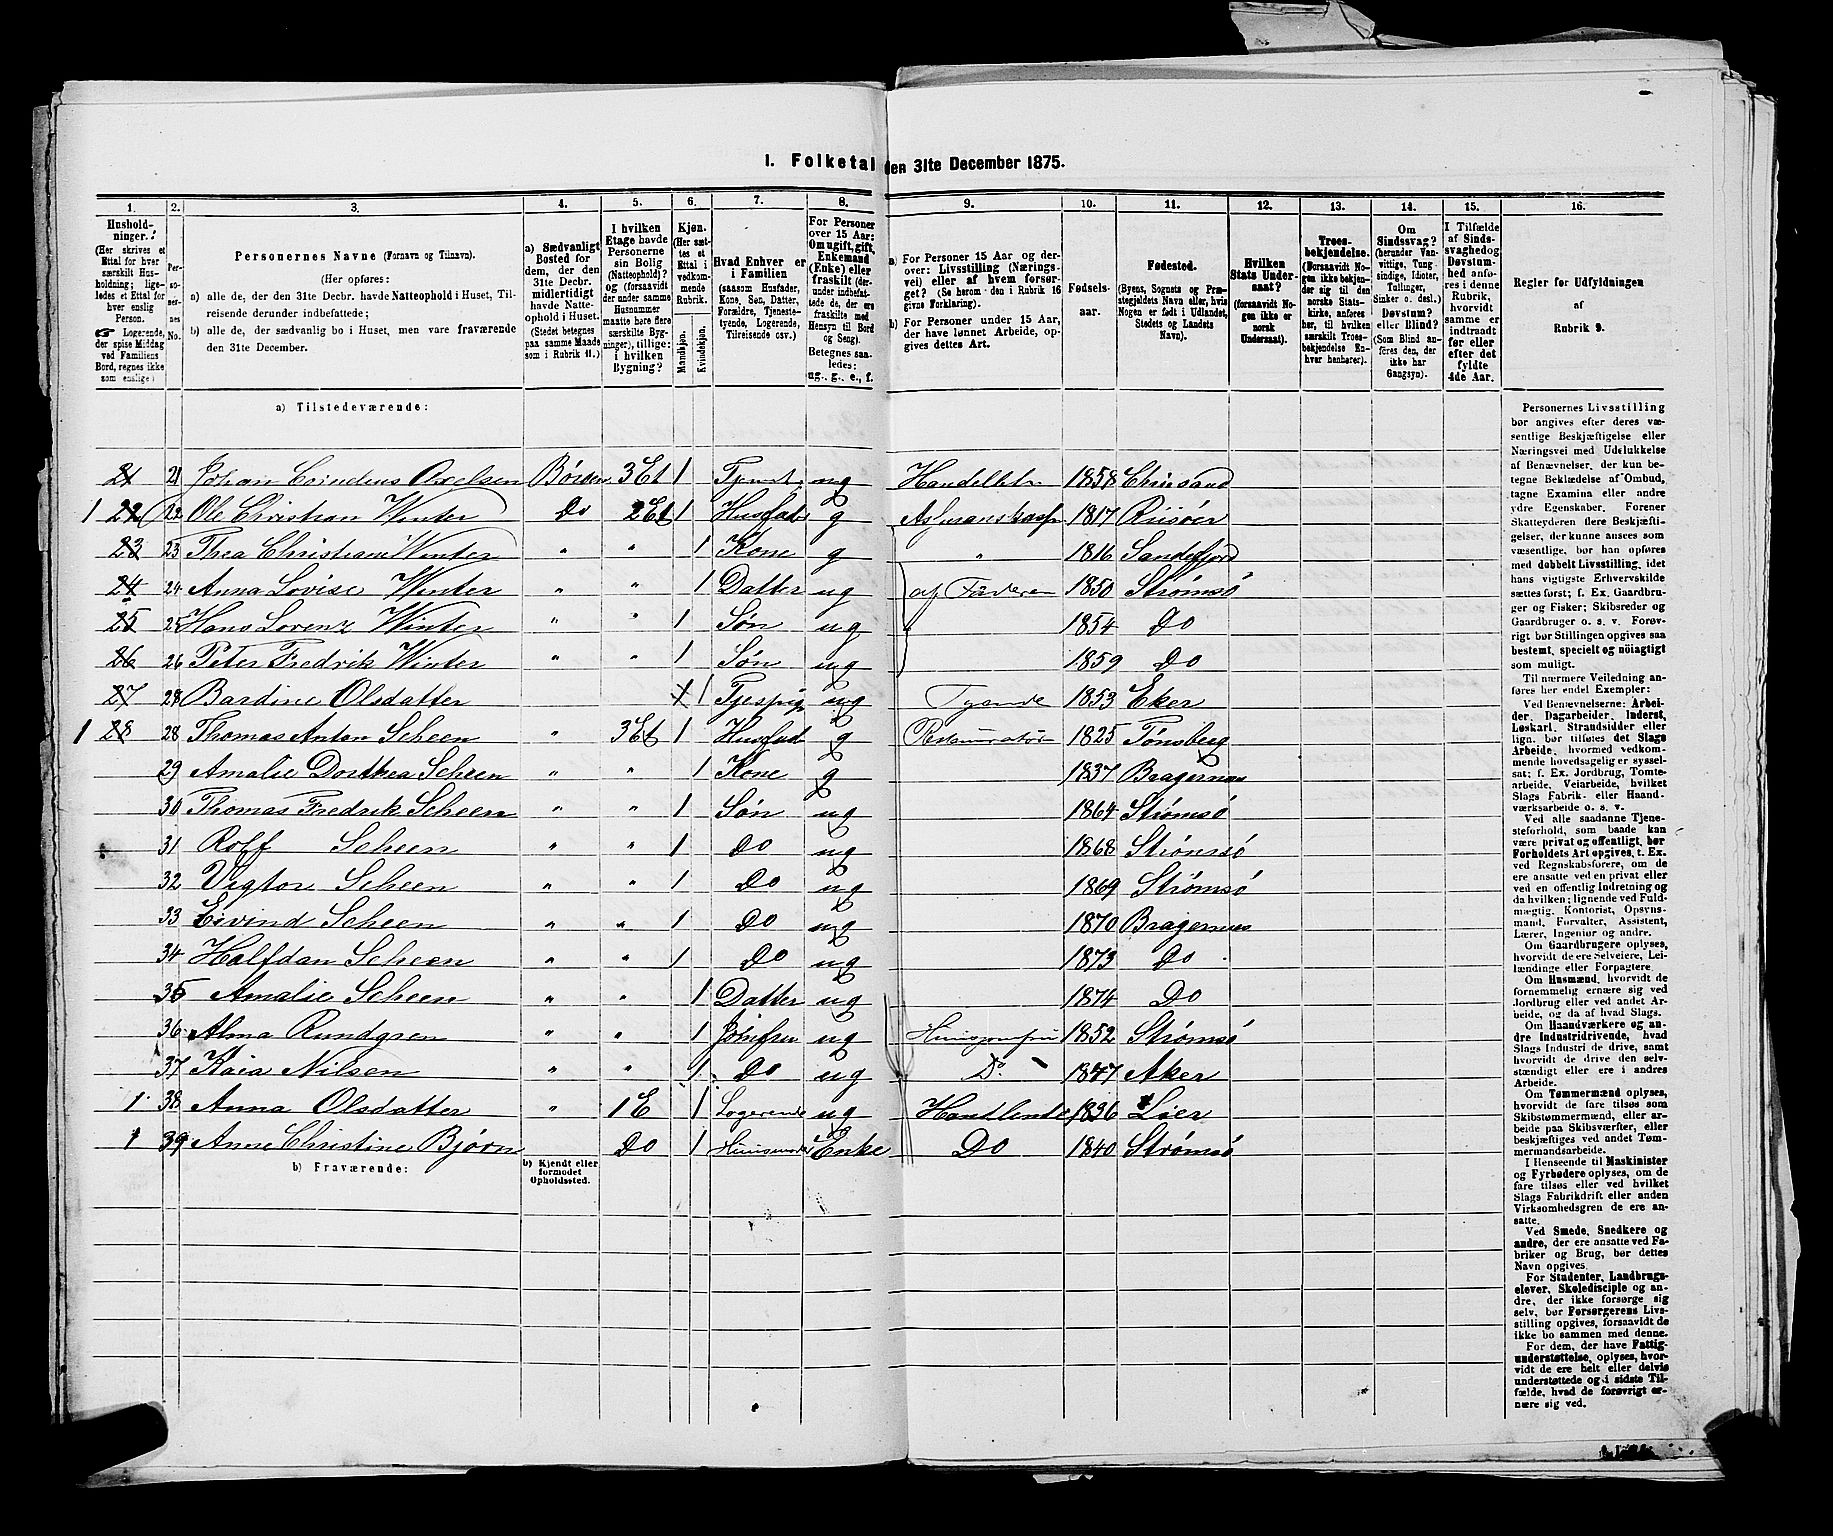 I. Folketal den 31te December 1875.
1. 2. 3. 4. 5. 6. 7. 8. 9. 10. 11. 12. 13. 14. 15. 16.
Husholdninger.
(Her skrives et Ettal for hver særskilt Husholdning; ligeledes et Ettal for hver enslig Person.
☞ Logerende, der spise Middag ved Familiens Bord, regnes ikke som enslige)
Personernes No.
Personernes Navne (Fornavn og Tilnavn).
(Her opføres:
a) alle de, der den 31te Decbr. havde Natteophold i Huset, Tilreisende derunder indbefattede;
b) alle de, der sædvanlig bo i Huset, men vare fraværende den 31te December.
a) Sædvanligt Bosted for dem, der den 31te Decbr. midlertidigt havde Natteophold i Huset. (Stedet betegnes paa samme Maade som i Rubrik 11.)
I hvilken Etage havde Personerne sin Bolig (Natteophold)? og (forsaavidt der under samme Husnummer maatte høre flere særskilte Bygninger), tillige: i hvilken Bygning?
Kjøn. (Her sættes et Ettal i vedkommende Rubrik.
Mandkjøn. Kvindekjøn.
Hvad Enhver er i Familien (saasom Husfader, Kone, Søn, Datter, Forældre, Tjenestetyende, Logerende, Tilreisende osv.)
For Personer over 15 Aar: Om ugift, gift, Enkemand (Enke) eller fraskilt (derunder indbefattede de, der ere fraskilte med Hensyn til Bord og Seng). Betegnes saaledes: ug., g., e., f.
a) For Personer 15 Aar og derover: Livsstilling (Næringsvei) eller af hvem forsørget? (Se herom den i Rubrik 16 givne Forklaring).
b) For Personer under 15 Aar, der have lønnet Arbeide, opgives dettes Art.
Fødselsaar.
Fødested.
(Byens, Sognets og Præstegjeldets Navn eller, hvis Nogen er født i Udlandet, Stedets og Landets Navn).
Hvilken Stats Undersaat? (forsaavidt Nogen ikke er norsk Undersaat).
Troesbekjendelse. (Forsaavidt Nogen ikke bekjender sig til den norske Statskirke, anføres her, til hvilken særskilt Troesbekjendelse Enhver henhører).
Om Sindssvag? (herunder Vanvittige, Tungsindige, Idioter, Tullinger, Sinker o. desl.) Døvstum? eller Blind? (Som Blind anføres den, der ikke har Gangsyn).
I Tilfælde af Sindssvaghed og Døvstumhed anføres i denne Rubrik, hvorvidt samme er indtraadt før eller efter det fyldte 4de Aar.
Regler for Udfyldningen af Rubrik 9.
a) Tilstedeværende:
21 21 Johan Axelsen Børsen 3 Et 1 ug 1858
1 22 22 Ole Christian Winter Do 2 Et 1 Husfad g 1817 Riisøer
23 23 Thea Christiane Winter " " 1 Kone g " 1816 Sandefjord
24 24 Anna Lovise Winter " " 1 Datter ug af Faderen 1850 Strømsø
25 25 Hans Lorenz Winter " " 1 Søn ug " 1854 Do
26 26 Peter Fredrik Winter " " 1 Søn ug 1859 Do
27 28 Bardine Olsdatter 1 Tjespige ug Tyende 1853 Eker
1 28 28 Thomas Anton Scheen 3 Et 1 Husfad g Restauratør 1825 Tønsberg
29 Amalie Dorthea Scheen " " 1 Kone g 1837 Bragernæs
30 Thomas Fredrik Scheen " " 1 Søn ug 1864 Strømsø
31 Rolf Scheen " " 1 Do ug 1868 Strømsø
32 Vigtor Scheen " " 1 Do ug 1869 Strømsø
33 Eivind Scheen " " 1 Do ug 1870 Bragernæs
34 Halfdan Scheen " " 1 Do ug 1873 Do
35 Amalie Scheen " " 1 Datter ug 1874 Do
36 Alma Rundgren " " 1 ug Huusjomfru 1852 Strømsø
37 Kaia Nilsen " " 1 Do ug Do 1847 Aker
1 38 Anna Olsdatter " 1 E 1 Logerende ug 1836 Lier
1 39 Anne Christine Bjørn Do 1 Huusmoder Enke Do 1840 Strømsø
b) Fraværende:
b) Kjendt eller formodet Opholdssted.
Personernes Livsstilling bør angives efter deres væsentlige Beskjæftigelse eller Næringsvei med Udelukkelse af Benævnelser, der kun betegne Beklædelse af Ombud, tagne Examina eller andre ydre Egenskaber. Forener Skatteyderen flere Beskjæftigelser, der kunne ansees som væsentlige, bør han opføres med dobbelt Livsstilling, idet hans vigtigste Erhvervskilde sættes først; f. Ex. Gaardbruger og Fisker; Skibsreder og Gaardbruger o. s. v. Forøvrigt bør Stillingen opgives saa bestemt, specielt og nøiagtigt som muligt.
Til nærmere Veiledning anføres her endel Exempler:
Ved Benævnelserne: Arbeider, Dagarbeider, Inderst, Løskarl, Strandsidder eller lign. bør tilføies det Slags Arbeide, hvormed vedkommende hovedsagelig er sysselsat; f. Ex. Jordbrug, Tomtearbeide, Veiarbeide, hvilket Slags Fabrik- eller Haandværksarbeide o. s. v.
Ved alle saadanne Tjenesteforhold, som baade kan være privat og offentligt, bør Forholdets Art opgives, t. Ex. ved Regnskabsførere, om de ere ansatte ved en privat eller ved en offentlig Indretning og da hvilken; lignende ved Fuldmægtig, Kontorist, Opsynsmand, Forvalter, Assistent, Lærer, Ingeniør og andre.
Om Gaardbrugere oplyses, hvorvidt de ere Selveiere, Leilændinge eller Forpagtere.
Om Husmænd, hvorvidt de fornemmelig ernære sig ved Jordbrug eller ved andet Arbeide, og da af hvad Slags.
Om Haandværkere og andre Industridrivende, hvad Slags Industri de drive, samt hvorvidt de drive den selvstændigt eller ere i andres Arbeide.
Om Tømmermænd oplyses, hvorvidt de fare tilsøs som Skibstømmermænd, eller arbeide paa Skibsværfter, eller beskjæftiges ved andet Tømmermandsarbeide.
I Henseende til Maskinister og Fyrbødere oplyses, om de fare tilsøs eller ved hvilket Slags Fabrikdrift eller anden Virksomhedsgren de ere ansatte.
Ved Smede, Snedkere og andre, der ere ansatte ved Fabriker og Brug, bør dettes Navn opgives.
For Studenter, Landbrugselever, Skoledisciple og andre, der ikke forsørge sig selv, bør Forsørgerens Livsstilling opgives, forsaavidt de ikke bo sammen med denne.
For dem, der have Fattigunderstøttelse, oplyses, hvorvidt de ere helt eller delvis understøttede og i sidste Tilfælde, hvad de forøvrigt ernære sig ved.